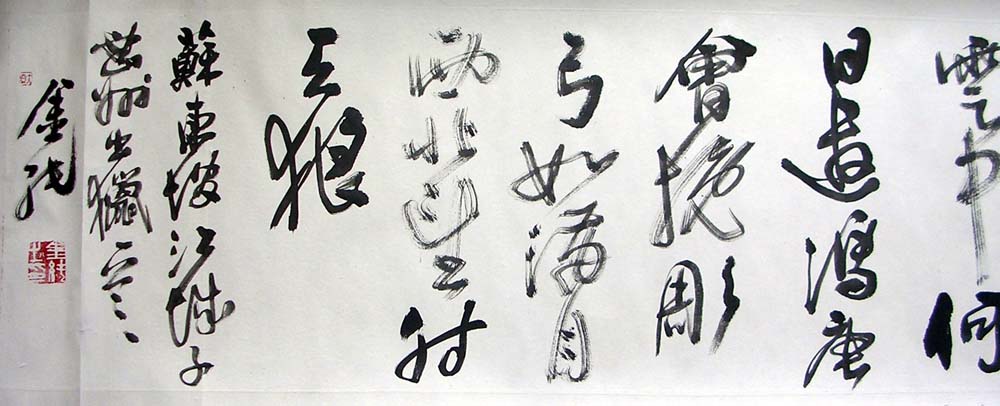 雲中何
日遣馮唐
會挽彫
弓如滿月
西北望射
天狼
蘇東坡江城子
密州出獵
金